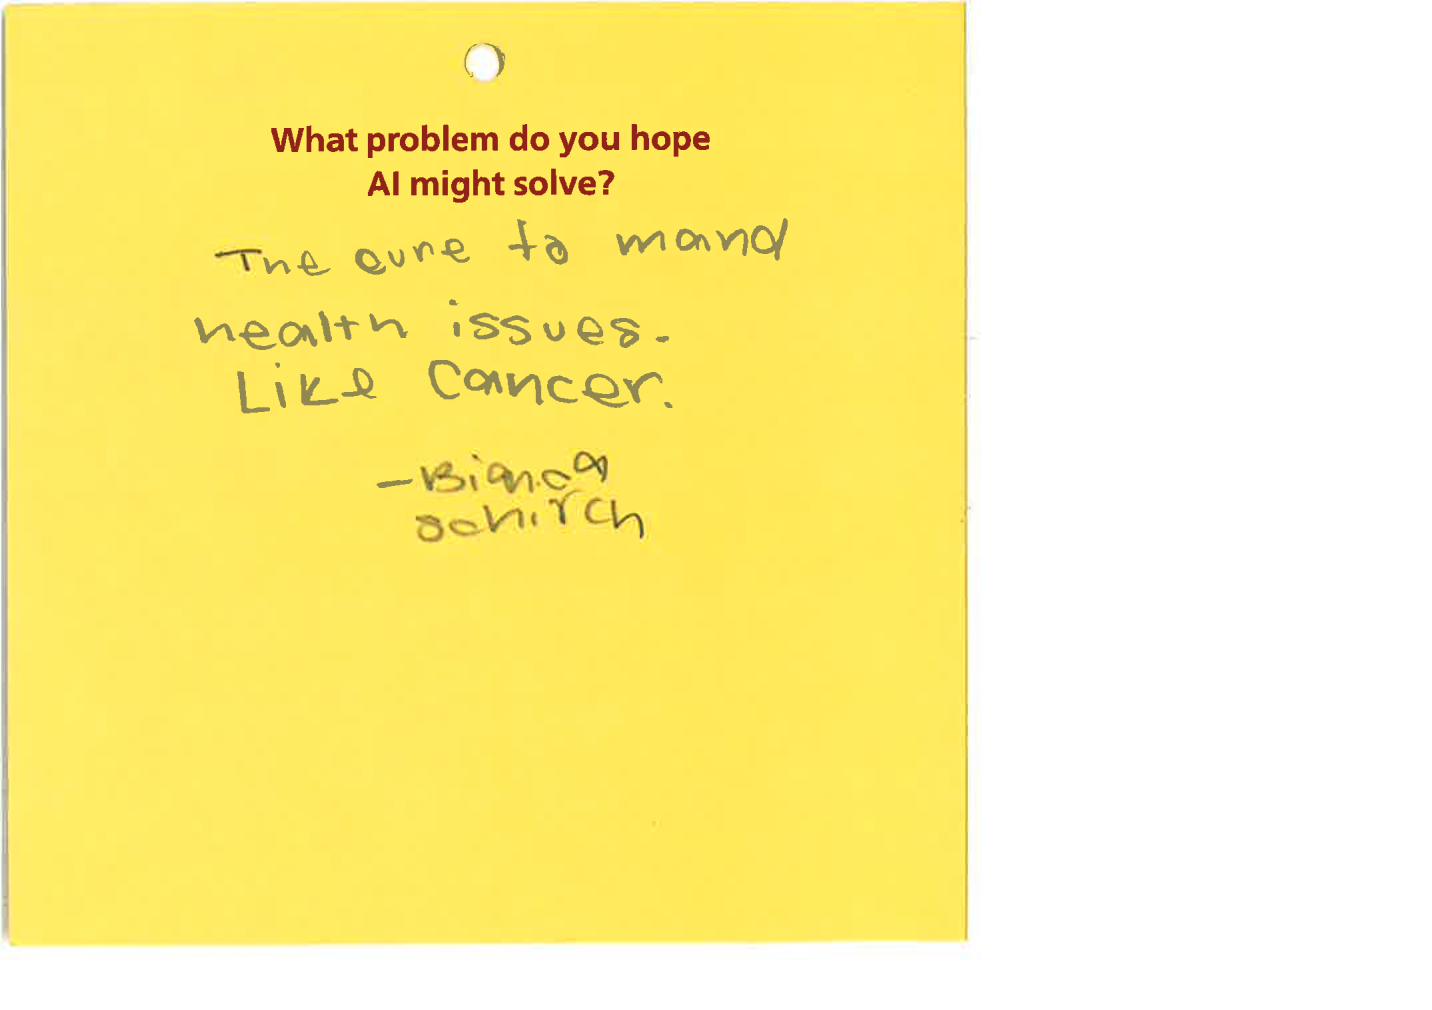 What problem do you hope
AI might solve?
The cure to mand
health issues.
Like Cancer.
-Bianca
schirch